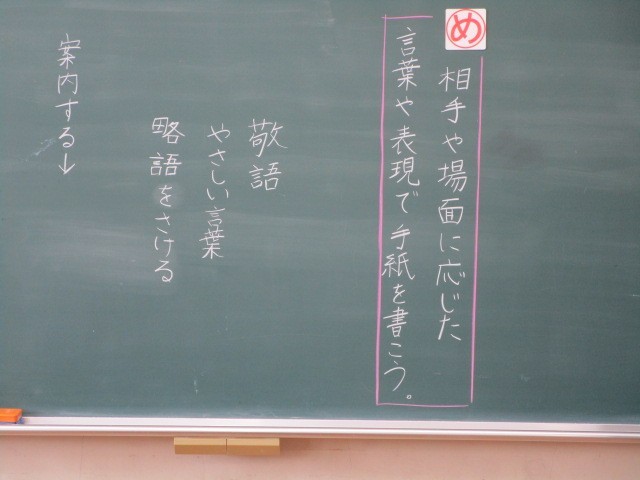 め
相手や場面に応じた
言葉や表現で手紙を書こう。
敬語
やさしい言葉
略語をさける
案内する↓